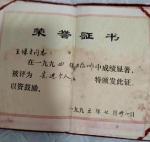 荣誉证书
同志：
在一九九四年工作中成绩显著，
被评为先进个人。特颁发此证，
以资鼓励。
一九九五年七月廿一日